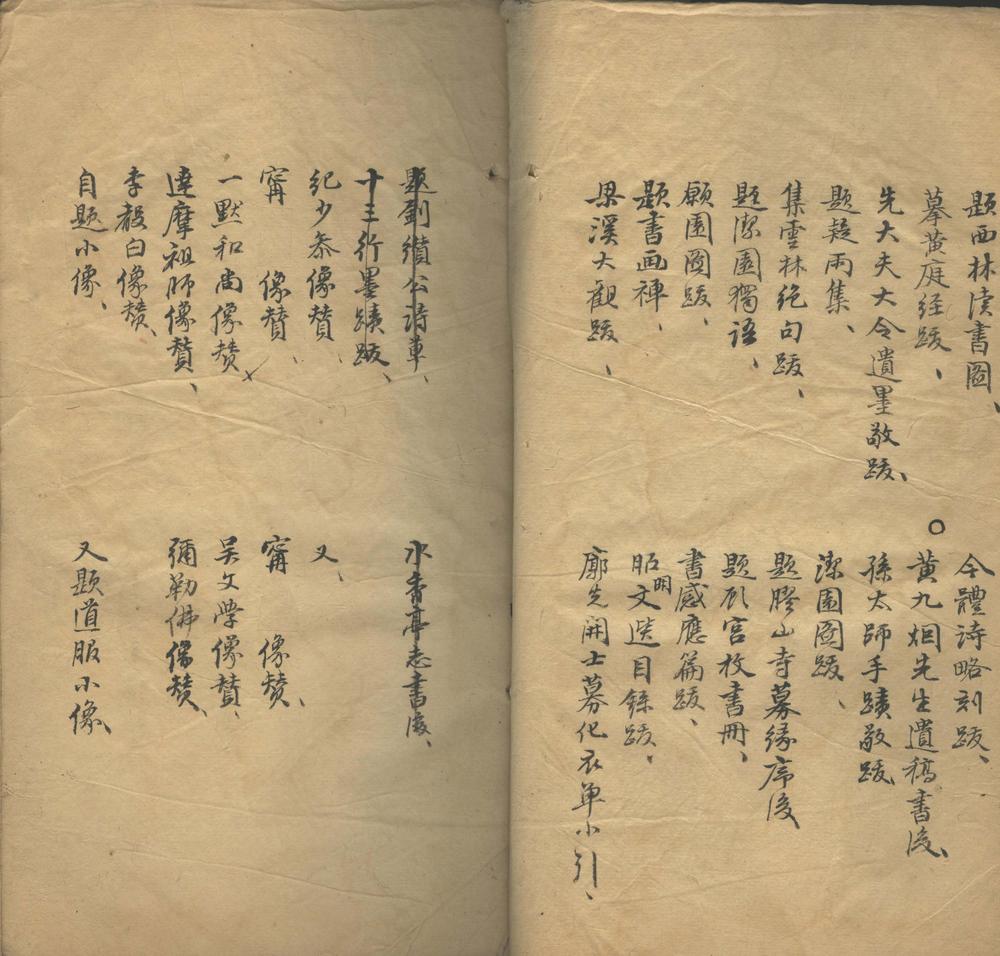 題西林读書圖、
今體詩略刻跋、
摹黄庭经跋、
○黄九烟先生遺稿書後、
先大夫大令遺墨敬跋、
孫太師手蹟敬跋
題疑雨集、
潔園圖跋、
集雲林绝句跋、
題膠山寺募缘序後
題潔園獨語、
題顾宫枚書冊、
願園圖跋、
書感應篇跋、
題書画禅、
昭明文選目錄跋、
梁溪大觀跋、
廓先開士募化衣单小引、
題劉纘公詩草、
水香亭志書後、
十三行墨蹟跋、
纪少参像赞、
又、
甯 像赞、
甯 像赞、
一默和尚像赞
吴文學像賛、
達摩祖師像賛、
彌勒佛像赞、
李毅白像赞、
自題小像、
又題道服小像、